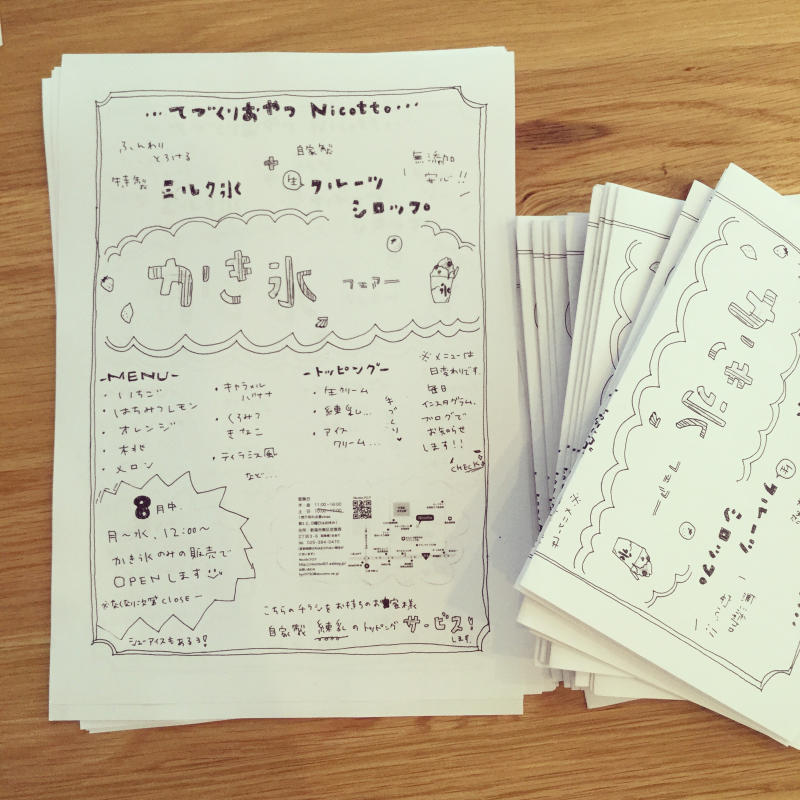 …てづくりおやつ Nicotto…
ふんわり
とろける
特製
ミルク氷
+
自家製
生 フルーツ
シロップ。
無添加
安心!!
かき氷 フェアー
-MENU-
・いちご
・はちみつレモン
・オレンジ
・桃
・メロン
・キャラメル
バナナ
・くるみつ
きなこ
・ティラミス風
など…
-トッピング-
・生クリーム
・練乳…
・アイス
クリーム…
手づくり
※メニューは
日変わりです。
毎日
インスタグラム、
ブログで
お知らせ
します!!
CHECK
8月中、
月〜水、12:00〜
かき氷のみの販売で
OPENします
※なくなり次第close—
シューアイスもあるヨ!
営業日
木・金 11:00~18:00
Nicotto
こちらのチラシをお持ちのお客様
自家製 練乳のトッピング サービス!
します。
かき氷
フェアー
生 フルーツ
シロップ。
無添加
安心!!
※メニューは